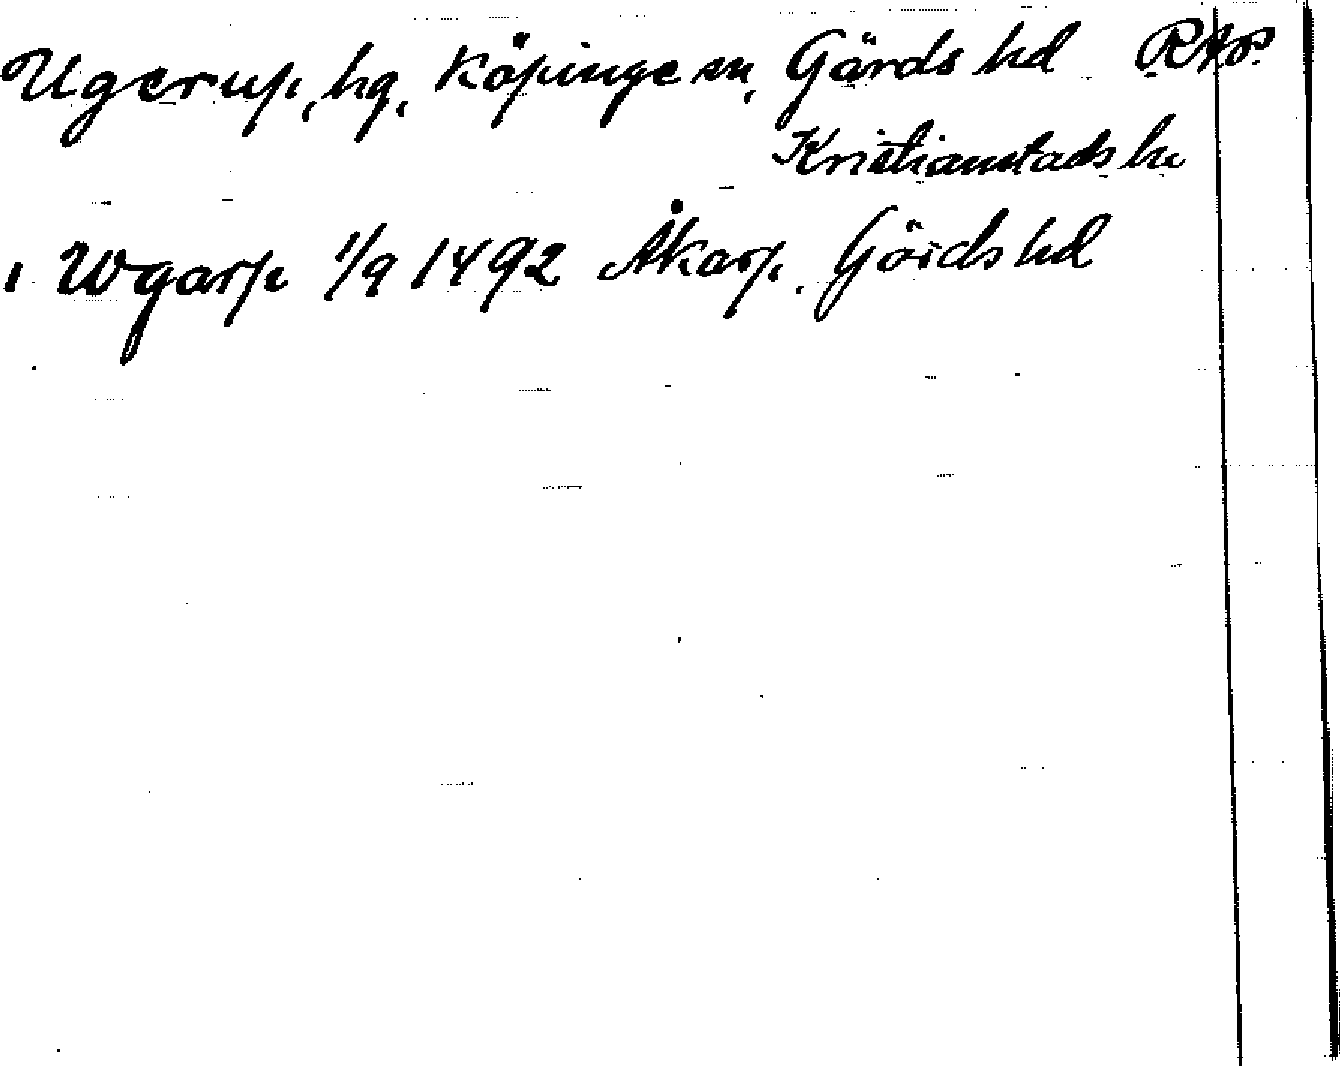 Ugerup, hg, Köpinge sn, Gärds hd RAp
Kristianstads ln
i Wgarp 1/9 1492 Åkarp, Görds hd